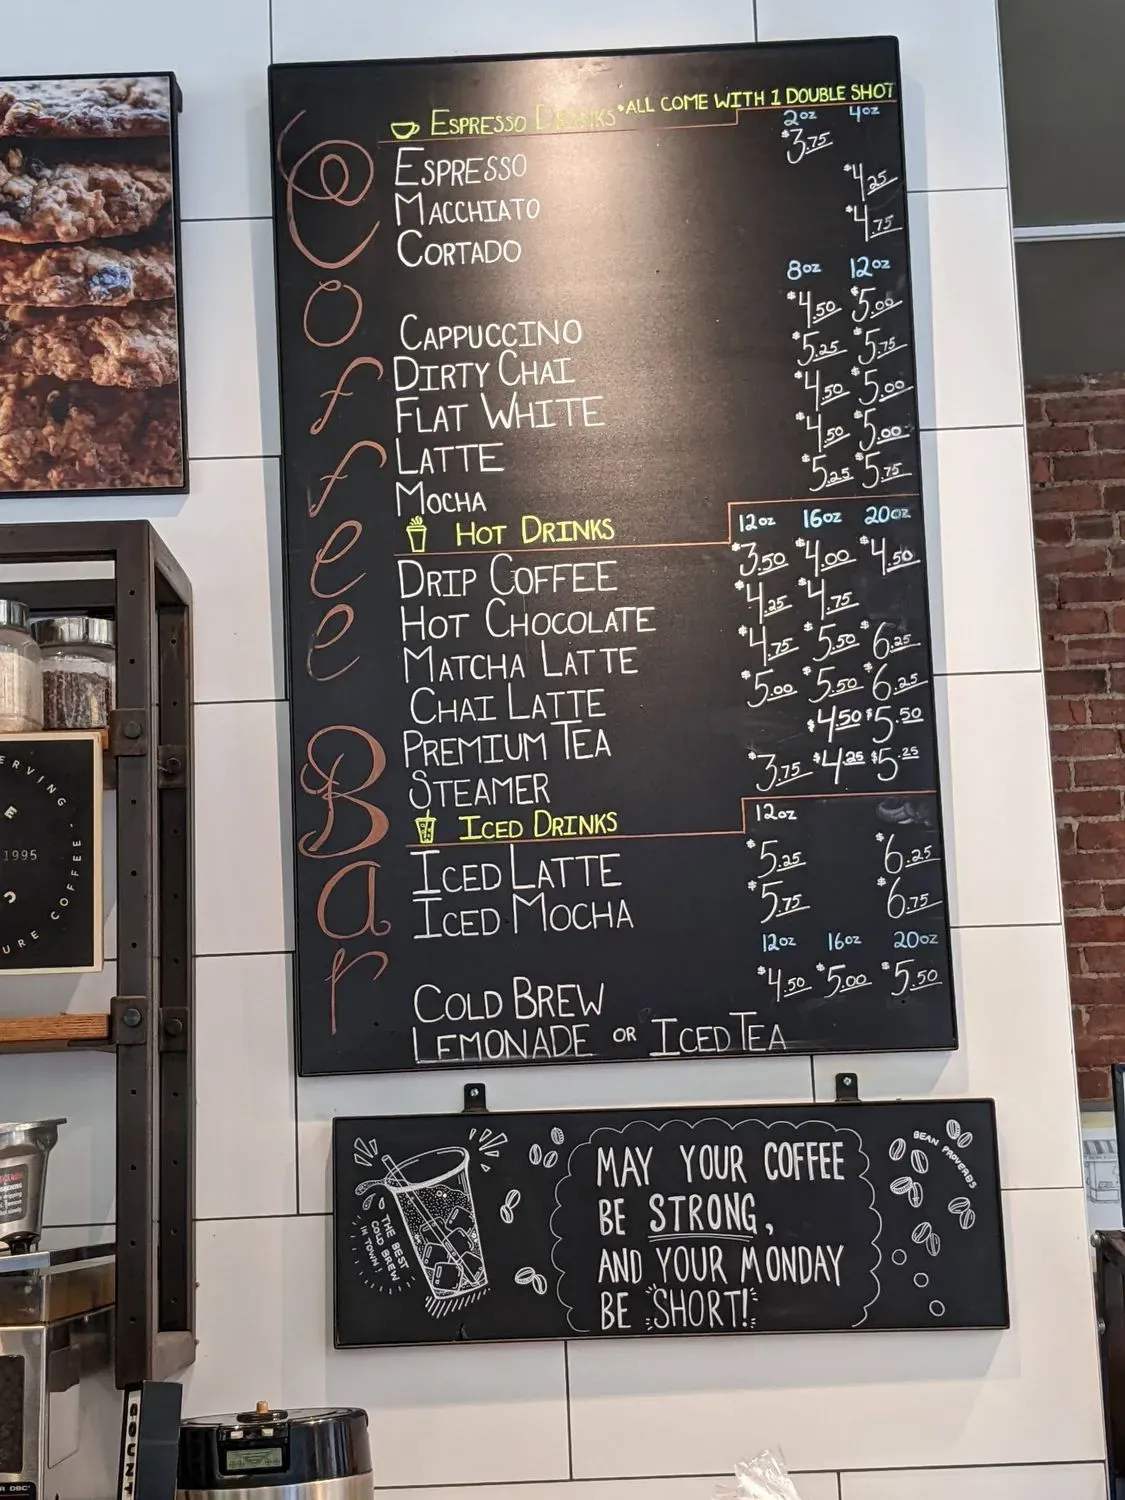 Coffee Bar
ESPRESSO DRINKS *ALL COME WITH 1 DOUBLE SHOT
2oz 4oz
ESPRESSO $3.75
MACCHIATO $4.25
CORTADO $4.75
8oz 12oz
CAPPUCCINO $4.50 $5.00
DIRTY CHAI $5.25 $5.75
FLAT WHITE $4.50 $5.00
LATTE $4.50 $5.00
MOCHA $5.25 $5.75
HOT DRINKS 12oz 16oz 20oz
DRIP COFFEE $3.50 $4.00 $4.50
HOT CHOCOLATE $4.25 $4.75
MATCHA LATTE $4.75 $5.50 $6.25
CHAI LATTE $5.00 $5.50 $6.25
PREMIUM TEA $4.50 $5.50
STEAMER $3.75 $4.25 $5.25
ICED DRINKS 12oz
ICED LATTE $5.25 $6.25
ICED MOCHA $5.75 $6.75
12oz 16oz 20oz
COLD BREW $4.50 $5.00 $5.50
LEMONADE OR ICED TEA
THE BEST
COLD BREW
IN TOWN!
MAY YOUR COFFEE
BE STRONG,
AND YOUR MONDAY
BE SHORT!
BEAN PROVERBS
ERVING
E
1995
URE COFFEE
COUNT